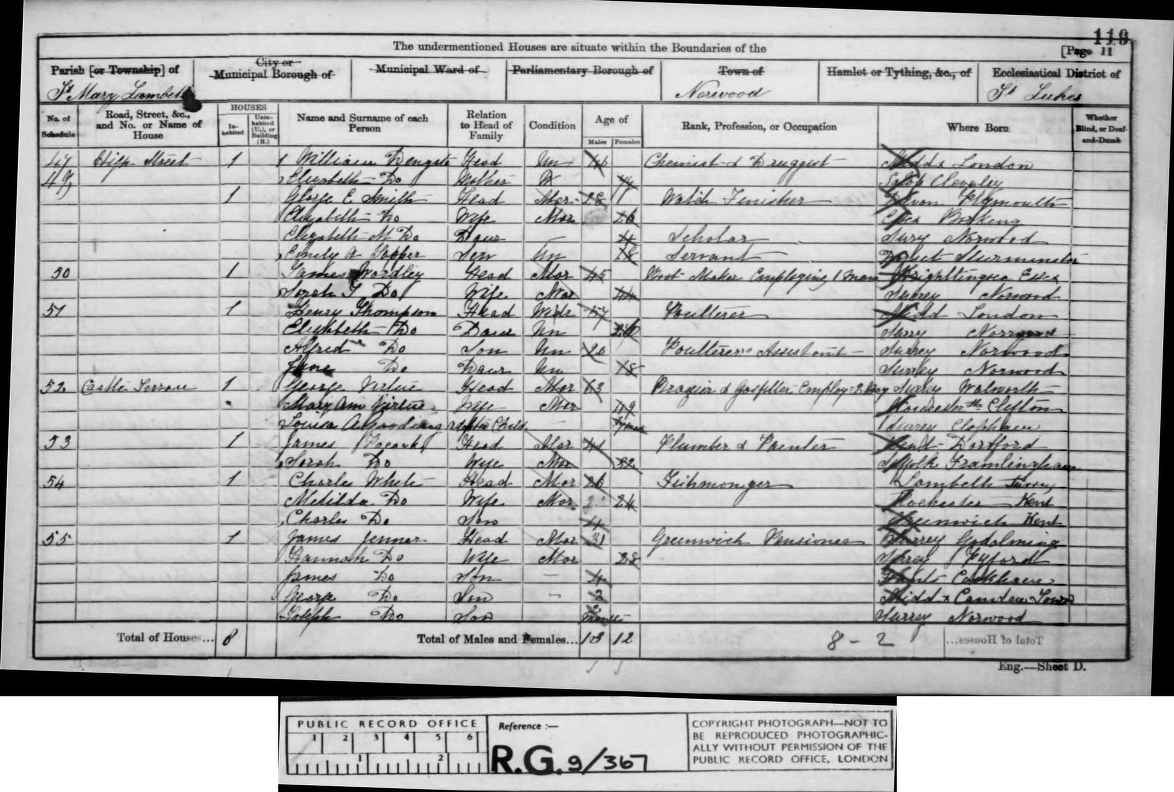 119
The undermentioned Houses are situate within the Boundaries of the
[Page 11
Parish [or Township] of
City or Municipal Borough of
Municipal Ward of
Parliamentary Borough of
Town of
Hamlet or Tything, &c., of
Ecclesiastical District of
St Mary Lambeth
Norwood
St Lukes
No. of Schedule
Road, Street, &c., and No. or Name of House
HOUSES
In-habited
Unin-habited (U.), or Building (B.)
Name and Surname of each Person
Relation to Head of Family
Condition
Age of
Males
Females
Rank, Profession, or Occupation
Where Born
Whether Blind, or Deaf-and-Dumb
Street 1 1 William Dengate Head Un Chemist & Druggist London
49 Elizabeth Do Mother W
1 George E Smith Head Mar 28 Watch Finisher Devon Plymouth
Elizabeth Do Wife Mar 26 Essex Bocking
Elizabeth M Do Daur 4 Scholar Surry Norwood
Emily A Serv Un 18 Servant Dorset Sturminster
50 1 James Wordley Head Mar 45 Boot Maker Employing 1 man Essex
Sarah Do Wife Mar 44 Surrey Norwood
51 1 Henry Thompson Head 57 Poulterer London
Elizabeth Do Daur Un Surry Norwood
Alfred Do Son Un 20 Poulterers Assistant Surrey Norwood
Jane Do Daur Un 18 Surrey Norwood
52 Castle Terrace 1 George Virtue Head Mar Brazier & Gasfitter Employ Surrey Walworth
Mary Ann Virtue Wife Mar 49 Clifton
Louisa A Child Surrey Clapham
53 1 James Head Mar 41 Plumber & Painter Kent Dartford
Sarah Do Wife Mar 32 Suffolk Framlingham
54 1 Charles White Head Mar 26 Fishmonger Lambeth Surrey
Matilda Do Wife Mar 24 Rochester Kent
Charles Do Son 4 Greenwich Kent
55 1 James Jenner Head Mar 31 Greenwich Pensioner Surrey Godalming
Hannah Do Wife Mar 28
James Do Son 4
Do Son 2 Midd x Camden Town
Joseph Do Son Surrey Norwood
Total of Houses... 8
Total of Males and Females... 13 12
8 - 2
Total of Houses...
Eng.—Sheet D.
PUBLIC RECORD OFFICE
1 2 3 4 5 6
1 2
Reference :—
R.G. 9/367
COPYRIGHT PHOTOGRAPH—NOT TO
BE REPRODUCED PHOTOGRAPHIC-
ALLY WITHOUT PERMISSION OF THE
PUBLIC RECORD OFFICE, LONDON